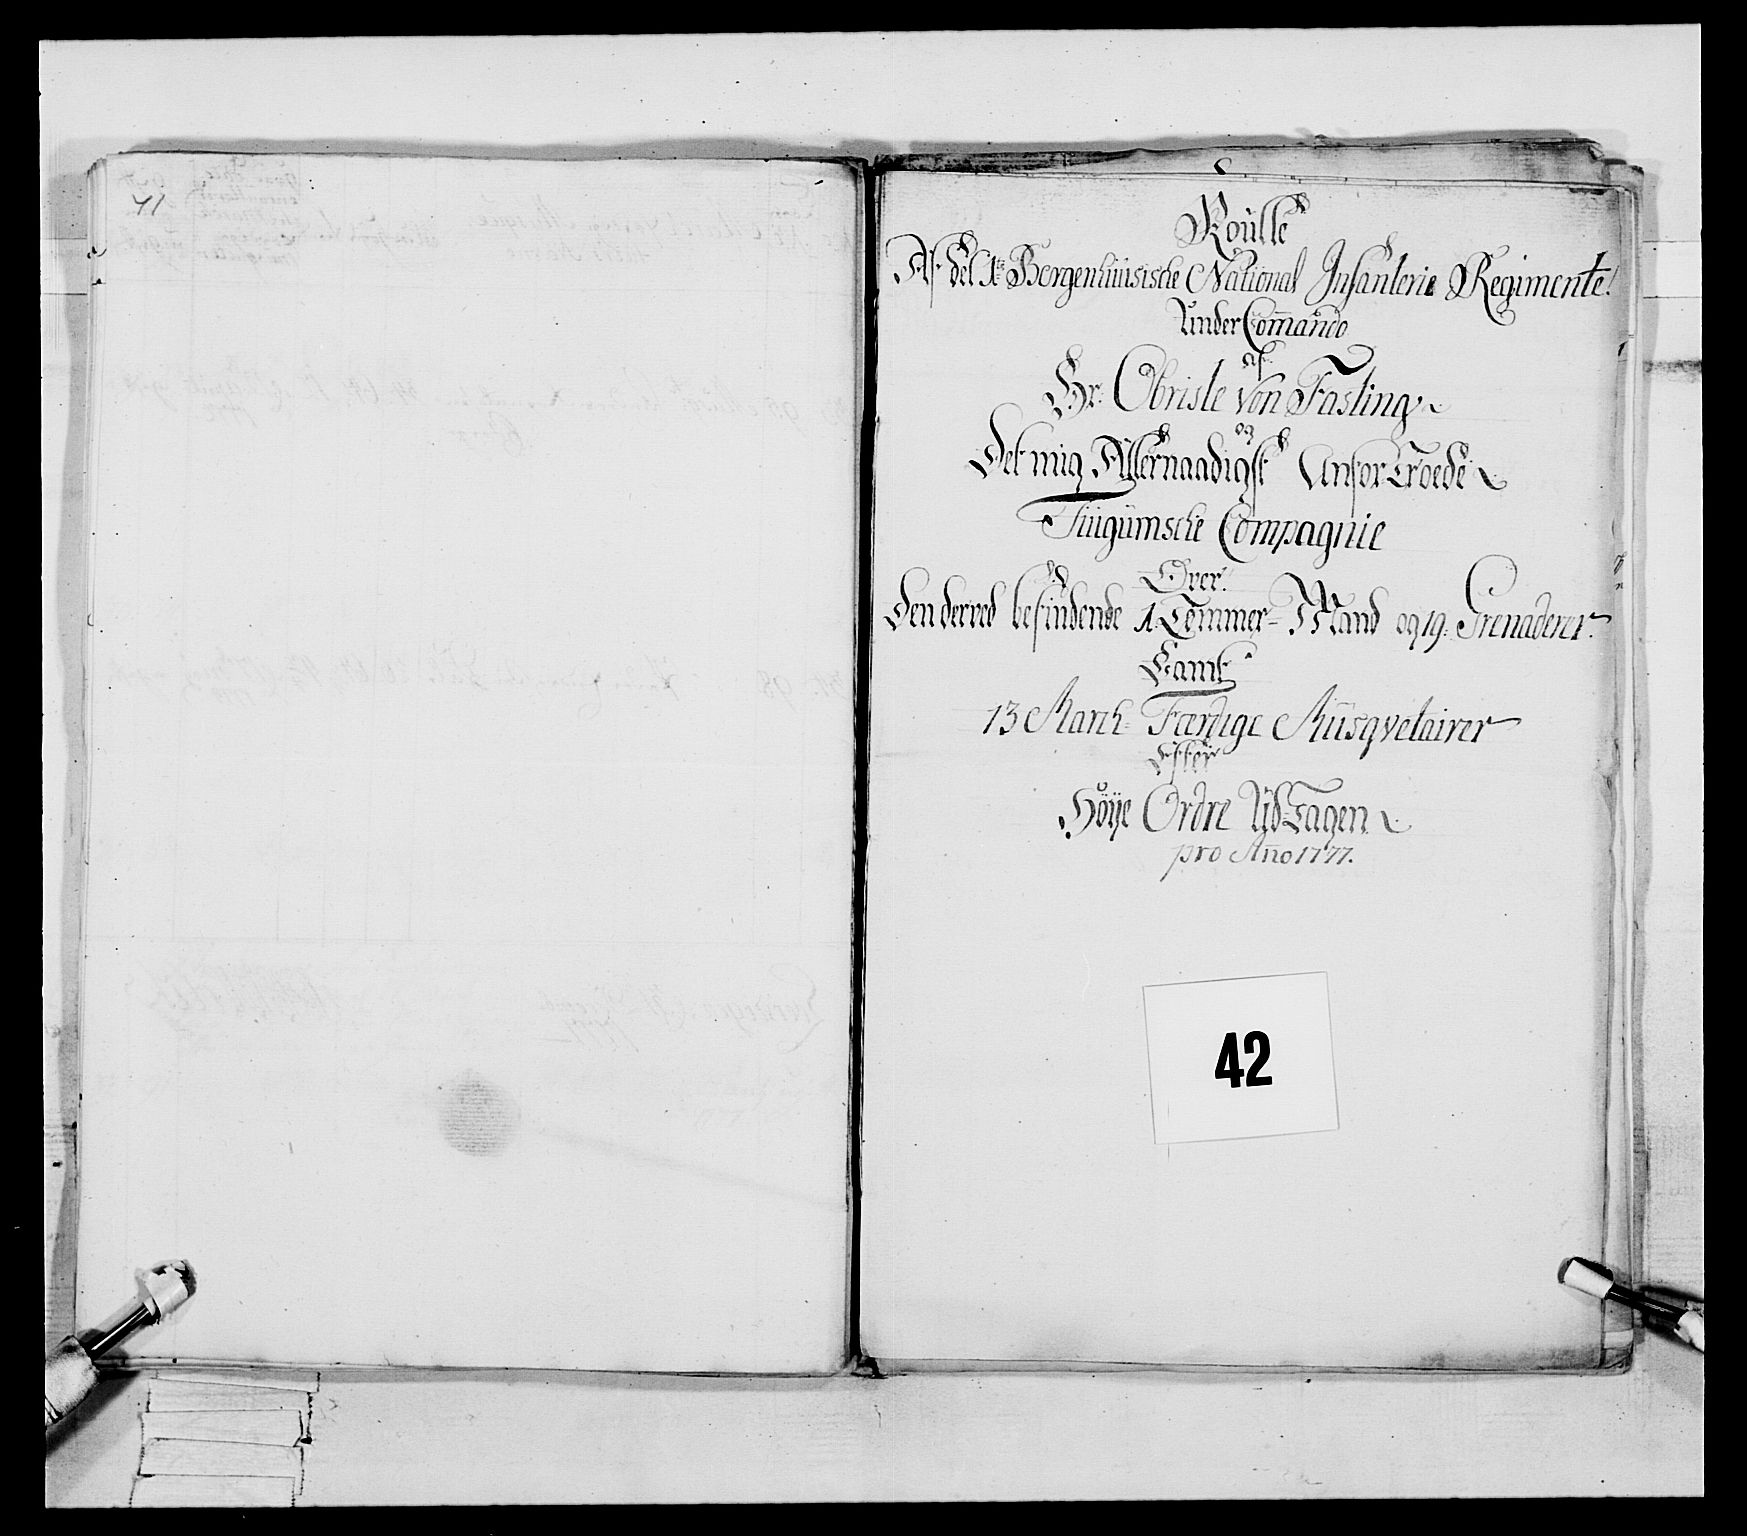 41
Roulle
Af det 1te Bergenhuusische National Infanterie Regimente
Under Commando
af
Hr. Obriste von Fasting
og
Det mig Allernaadigst Anfortroede
Tuugumsche Compagnie
Over
Den derved befindende 1 Tømmer-Mand og 19 Grenaderer
Samt
13 March-Færdige Musqvetairer
efter
Høye Ordre UdTagen
pro Año 1777.
42